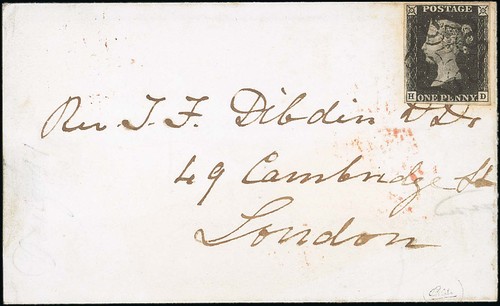 POSTAGE
H D
ONE PENNY
Rev T. F. Dibdin D.D.
49 Cambridge St
London